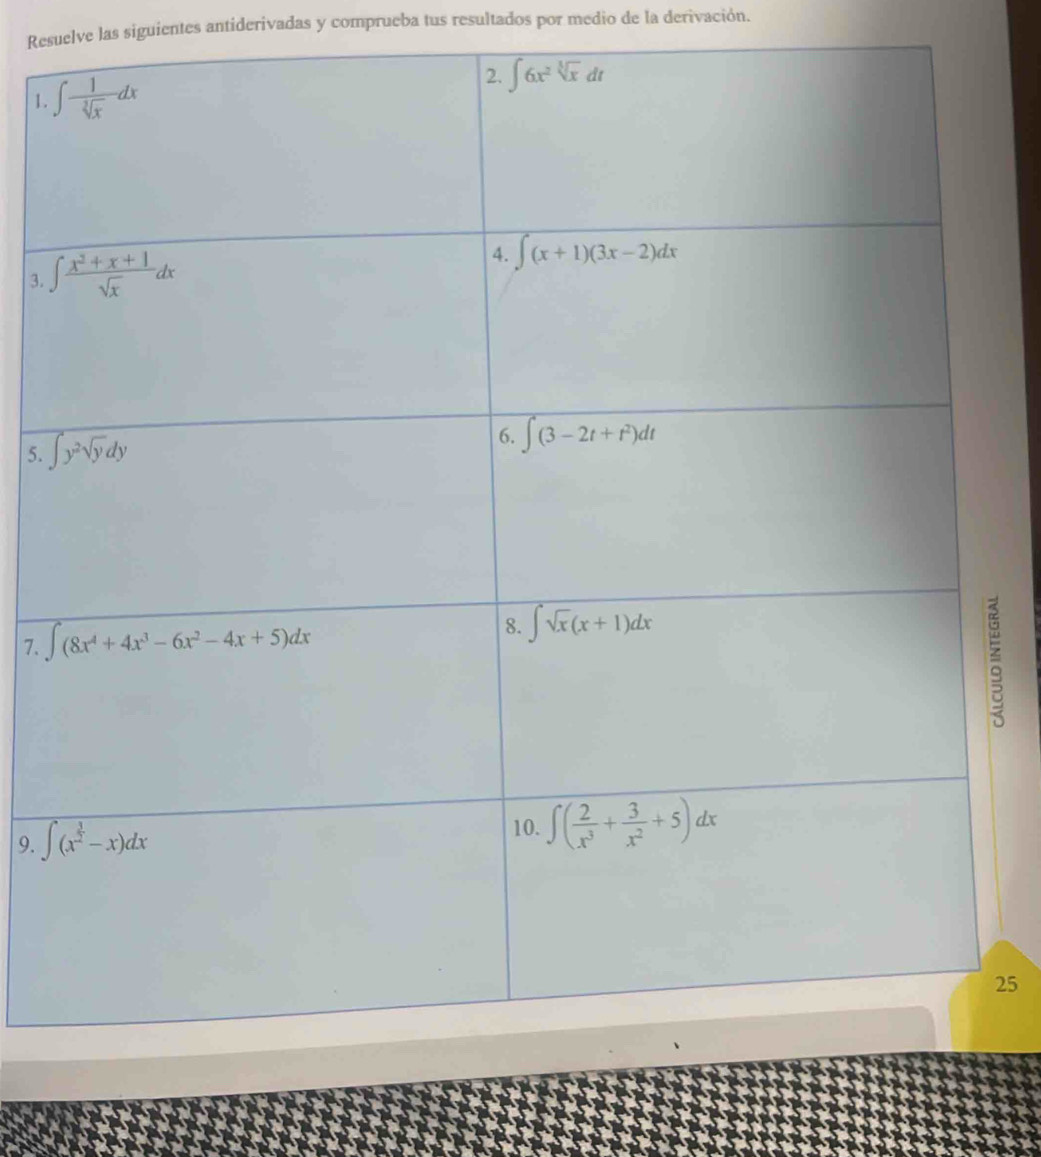 Resuelve las siguientes antiderivadas y comprueba tus resultados por medio de la derivación.
1. ∫ 1/∛x dx
2. ∫ 6x² ∛x dt
3. ∫ (x² + x + 1)/√x dx
4. ∫ (x + 1)(3x − 2)dx
5. ∫ y²√y dy
6. ∫ (3 − 2t + t²)dt
7. ∫ (8x⁴ + 4x³ − 6x² − 4x + 5)dx
8. ∫ √x (x + 1)dx
9. ∫ (x^(3/2) − x)dx
10. ∫ (2/x³ + 3/x² + 5) dx
CÁLCULO INTEGRAL
25